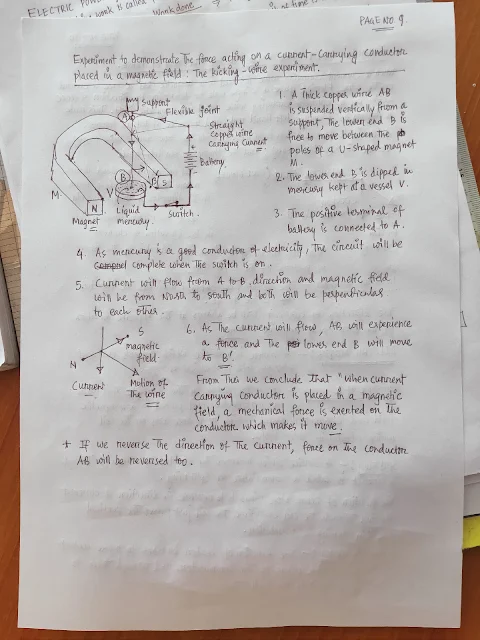 ELECTRIC POW
work is called
Work done
?
is at time is
PAGE NO. 9.
Experiment to demonstrate the force acting on a current-carrying conductor
placed in a magnetic field : The Kicking-wire experiment.
Support
A
Flexible joint
Straight
copper wire
Carrying Current
+
Battery
-
B
B'
S
M
V
N
Magnet
Liquid
mercury.
Switch.
1. A Thick copper wire AB
is suspended vertically from a
support, The lower end B is
free to move between the
poles of a U-shaped magnet
M.
2. The lower end B is dipped in
mercury kept at a vessel V.
3. The positive terminal of
battery is connected to A.
4. As mercury is a good conductor of electricity, The circuit will be
complete when the switch is on.
5. Current will flow from A to B, direction and magnetic field
will be from North to South and both will be perpendicular
to each other.
S
magnetic
field
N
Current
Motion of
the wire
6. As the current will flow, AB will experience
a force and the lower end B will move
to B'.
From This we conclude that "when current
carrying conductor is placed in a magnetic
field, a mechanical force is exerted on the
conductor which makes it move.
+ If we reverse the direction of the current, force on the conductor
AB will be reversed too.